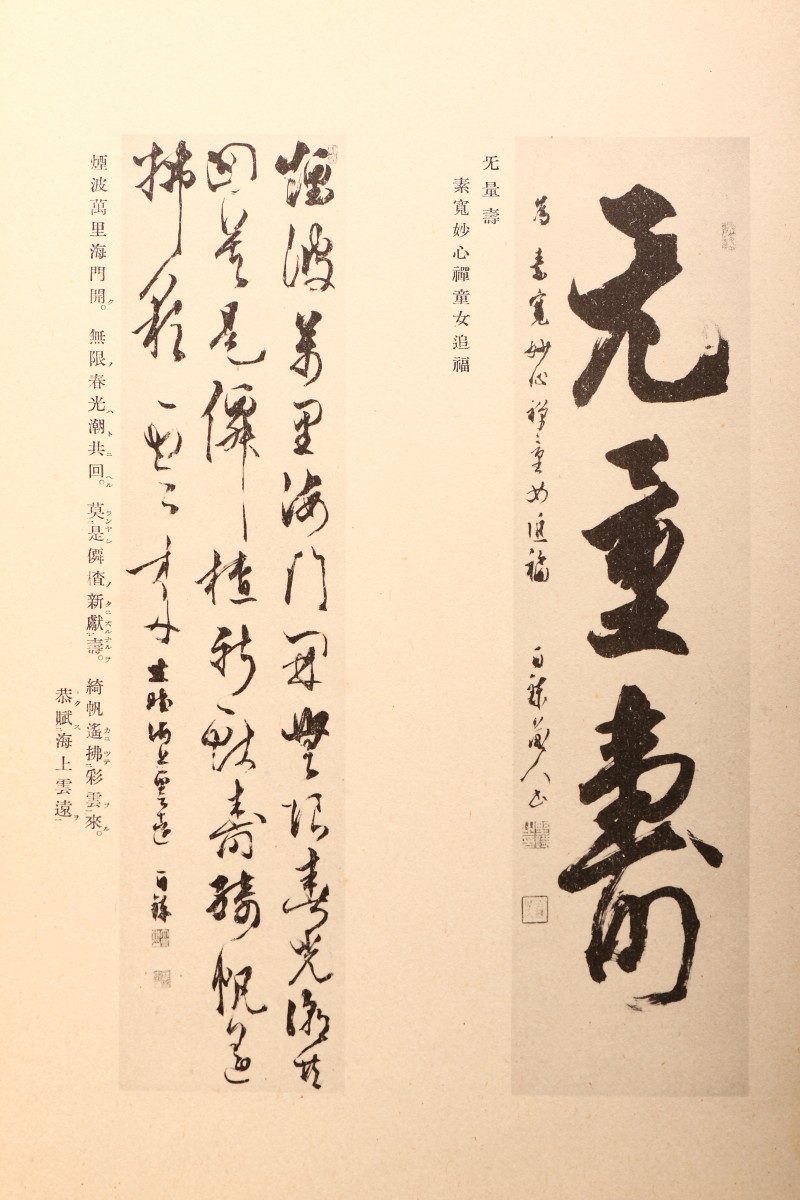 无量壽
為素寬妙心禅童女追福 百錬
旡量壽
素寬妙心禪童女追福
煙波萬里海門開無限春光潮共
回莫是僊楂新獻壽綺帆遙
拂彩雲来 恭賦海上雲遠 百錬
煙波萬里海門開。無限春光潮共回。莫是僊楂新獻壽。綺帆遙拂彩雲來。
恭賦海上雲遠